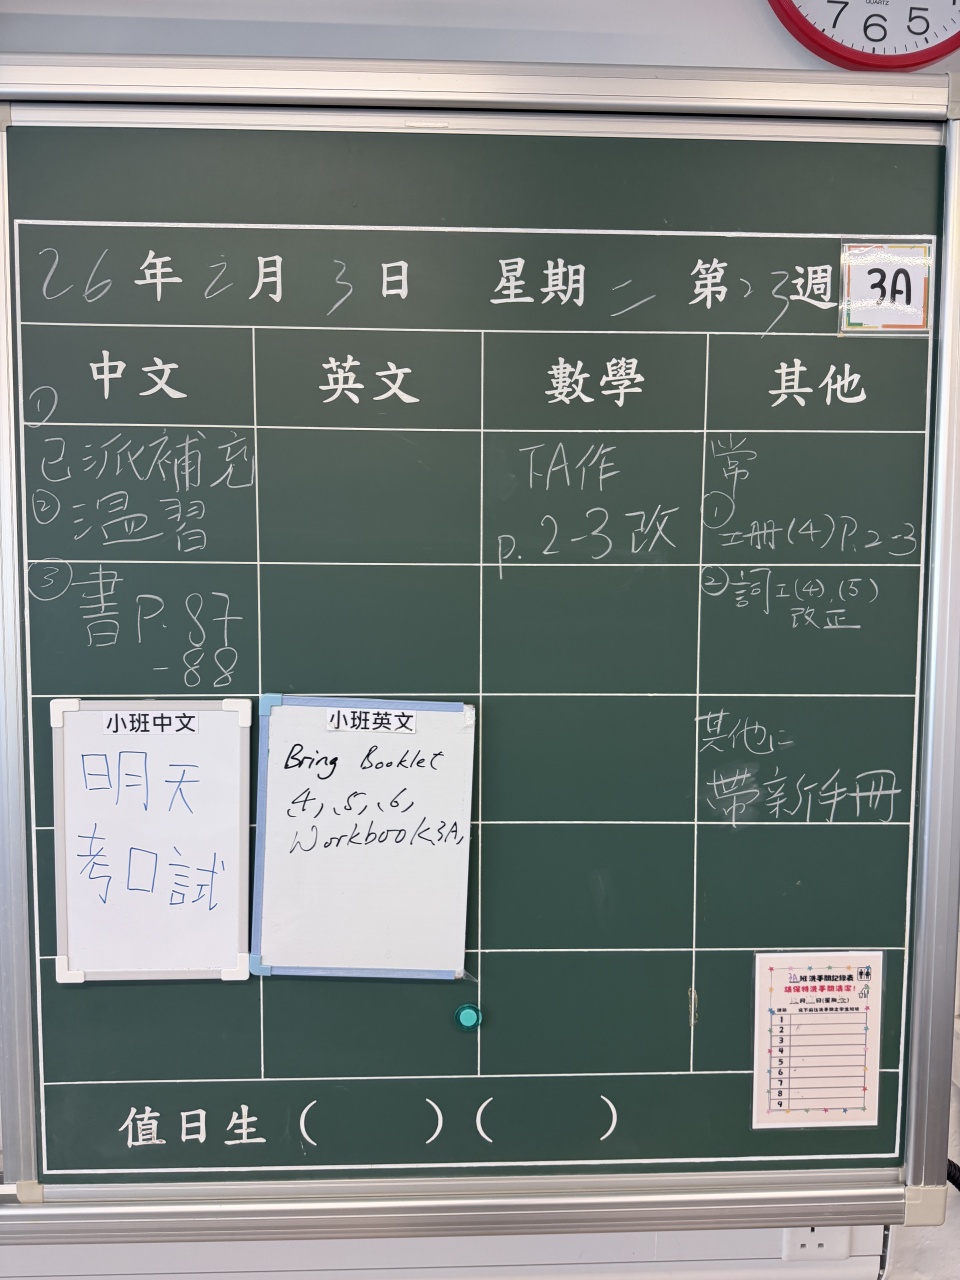 QUARTZ
7 6 5
26年2月3日 星期二 第23週 3A
中文 英文 數學 其他
①
已派補充
②溫習
③書P.87
-88
下A作
p.2-3改
常
①
工冊(4)P.2-3
②詞工(4),(5)
改正
其他:
帶新手冊
小班中文
明天
考口試
小班英文
Bring Booklet
4, 5, 6,
Workbook 3A,
3A班洗手間記錄表
請保持洗手間清潔!
1
2
3
4
5
6
7
8
9
值日生( )( )